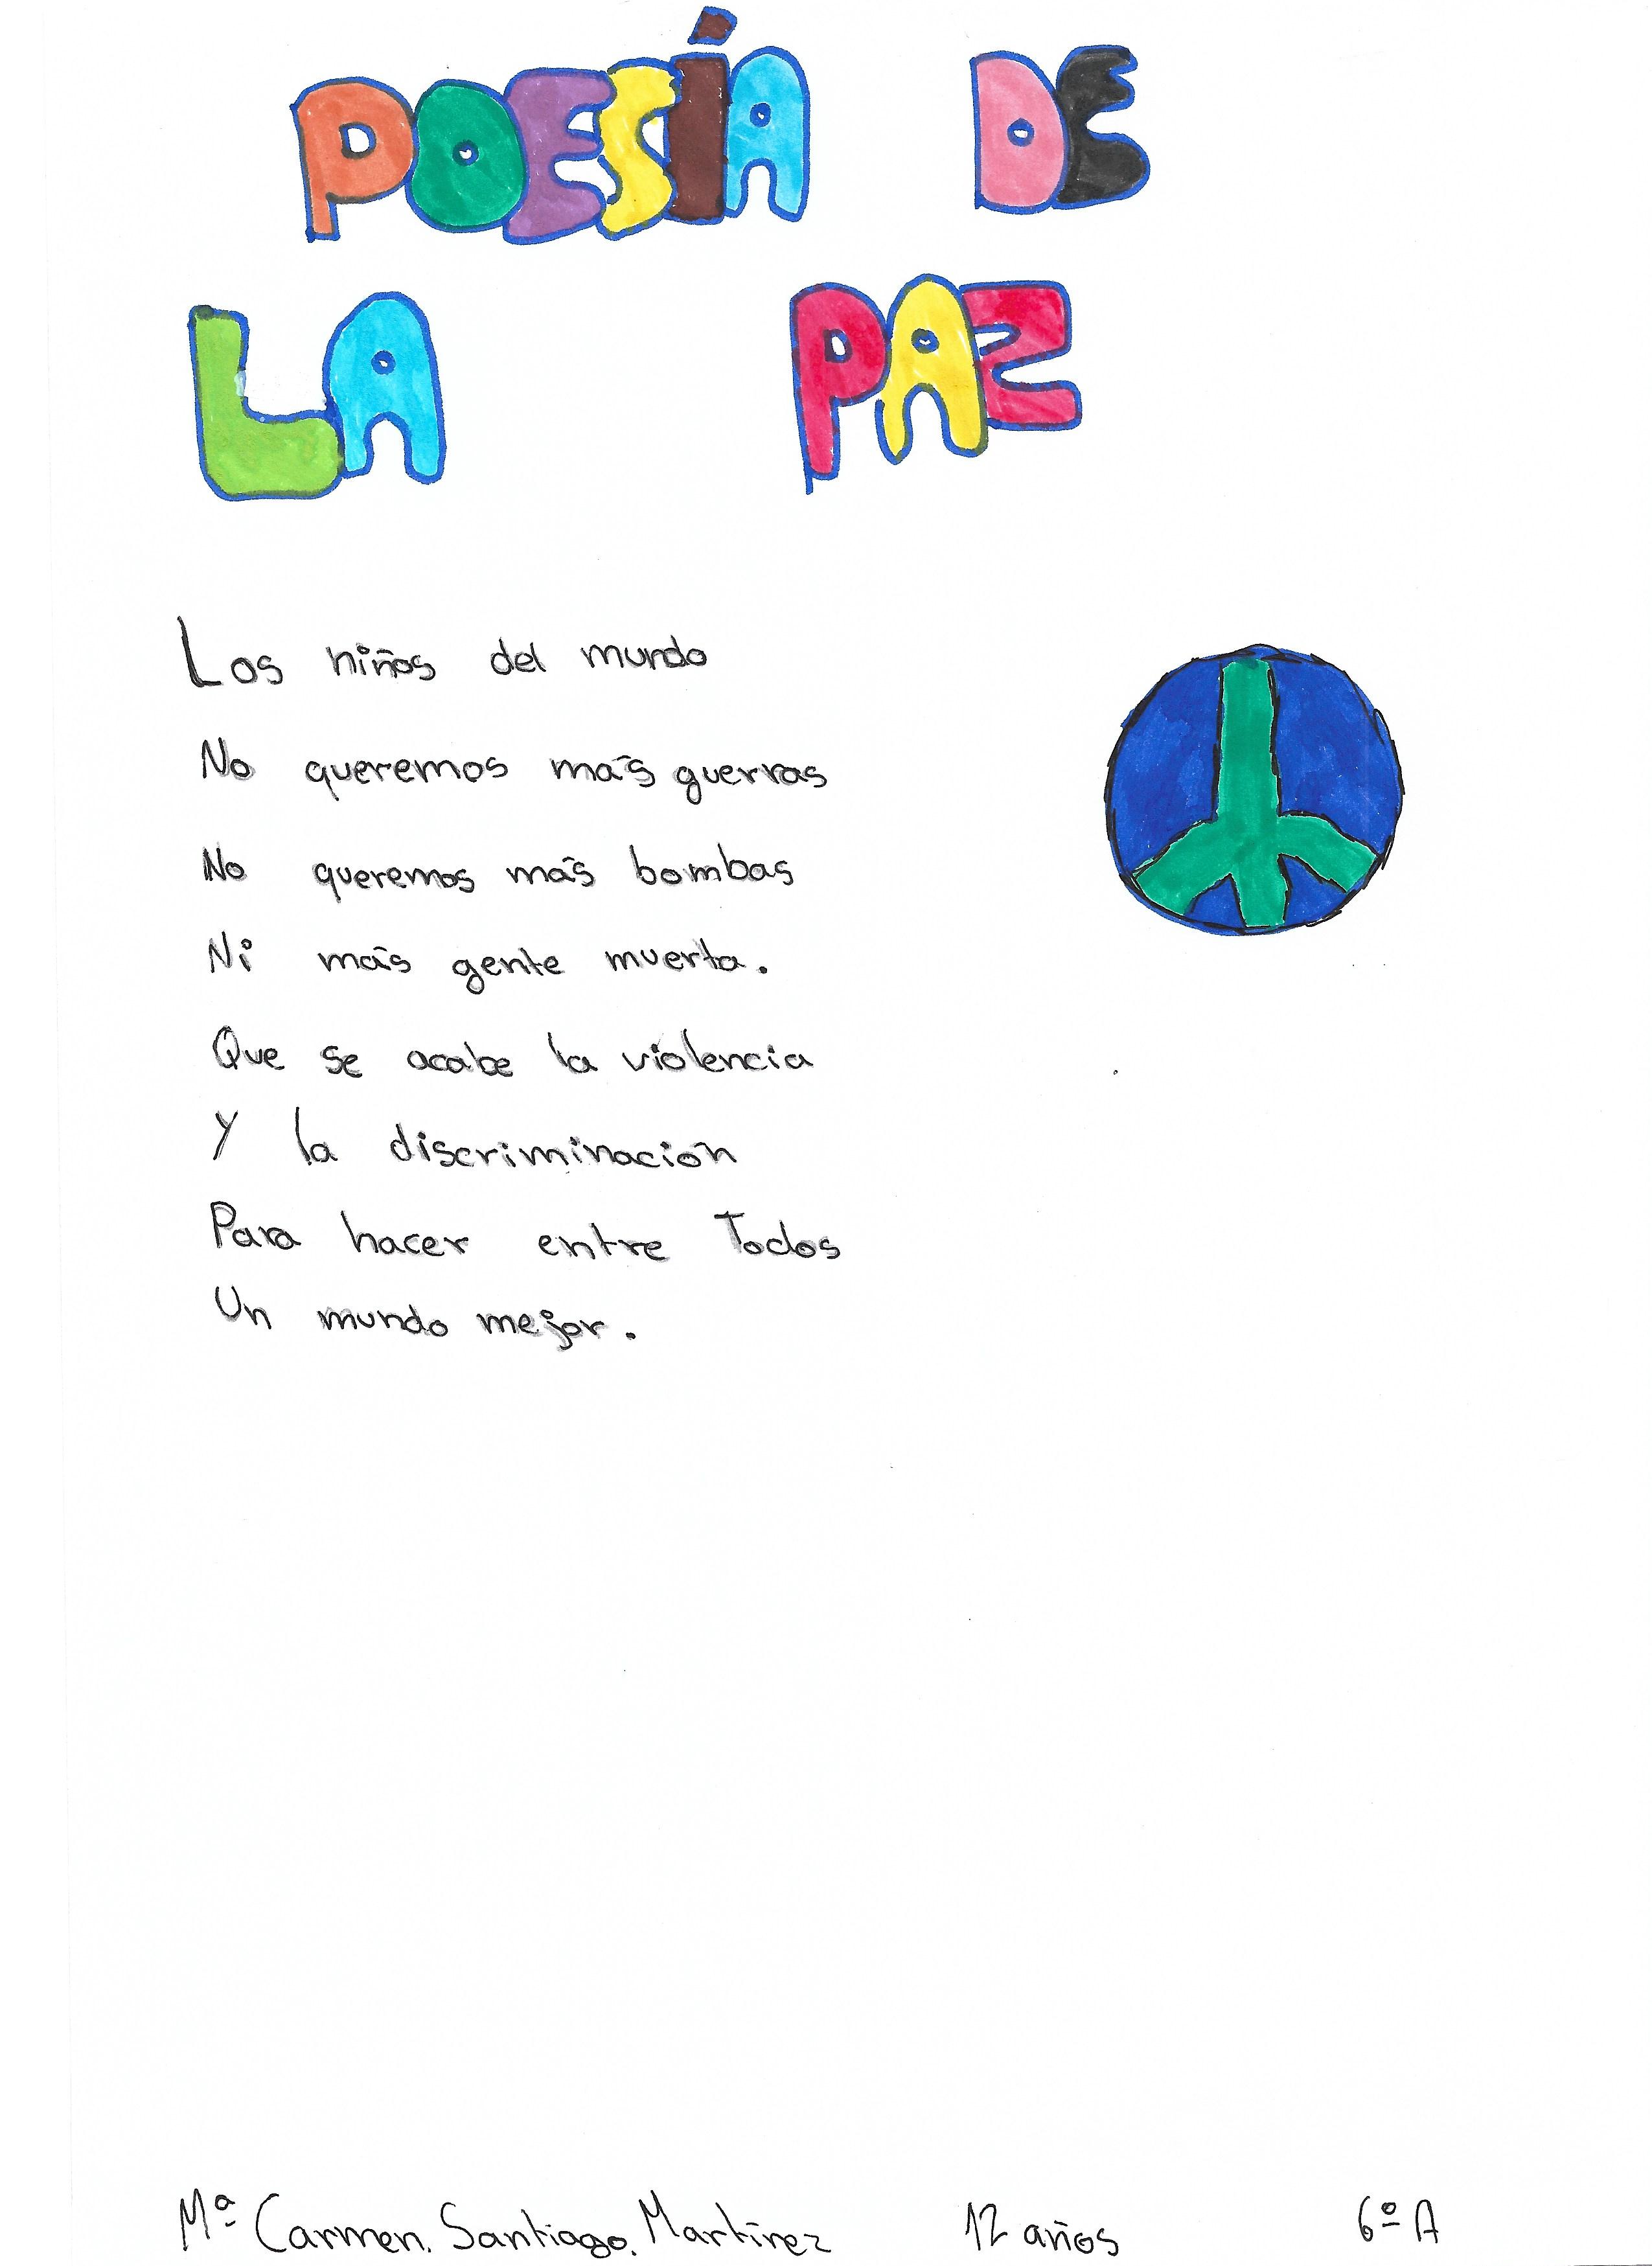 POESÍA DE
LA PAZ
Los niños del mundo
No queremos más guerras
No queremos más bombas
Ni más gente muerta.
Que se acabe la violencia
Y la discriminación
Para hacer entre Todos
Un mundo mejor.
Mª Carmen. Santiago. Martínez 12 años 6º A